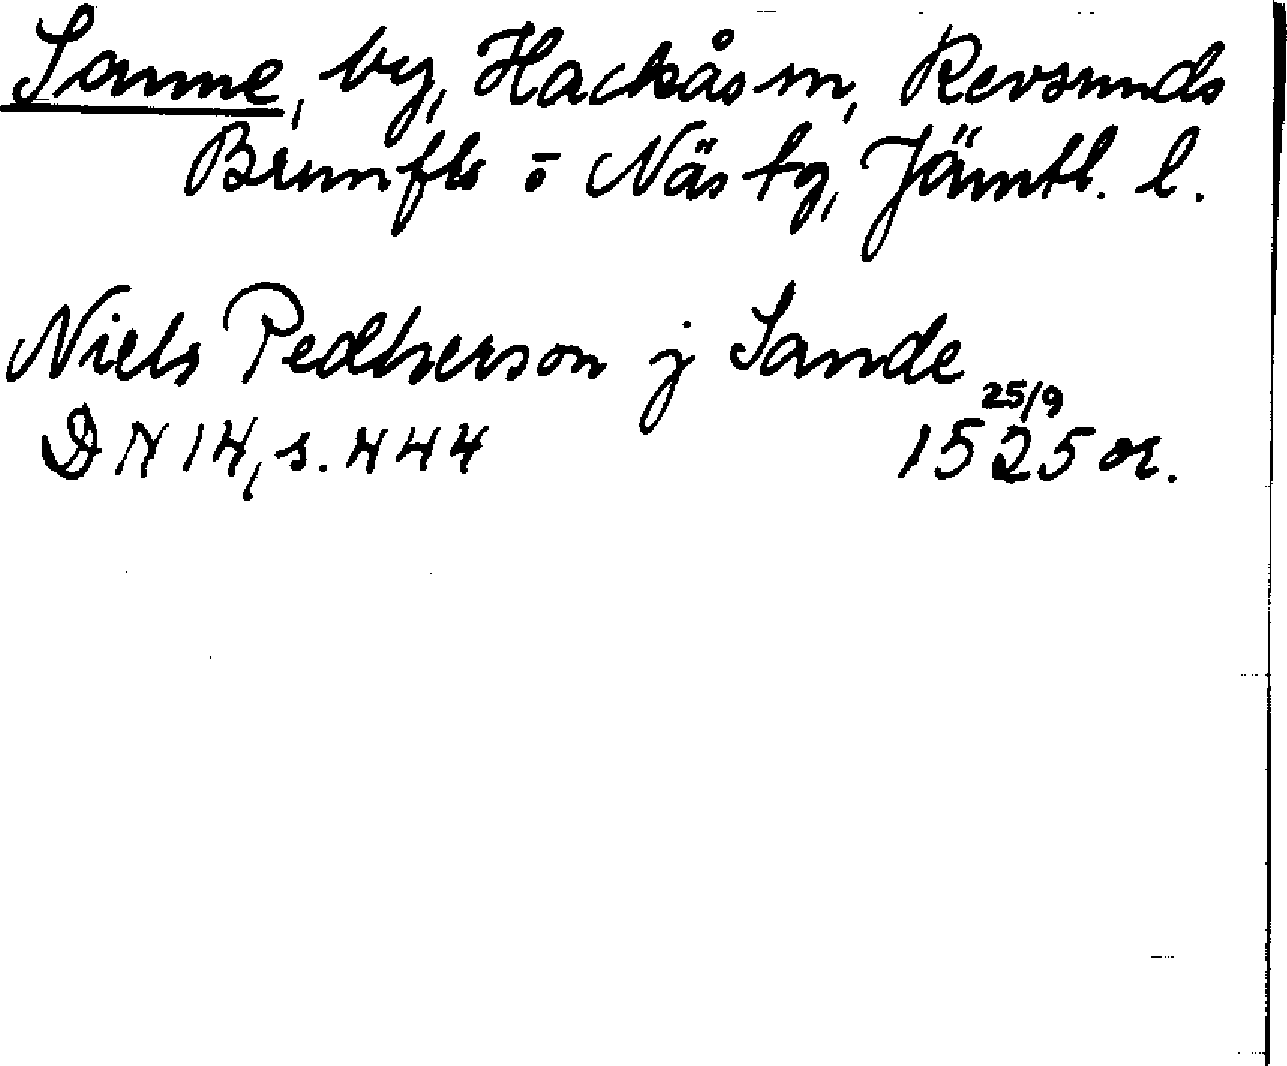 Sanne, by, Hackås sn, Revsunds
Brunflo o Näs tg, Jämtl. l.
Niels Pedherson j Sande
DN 14, s. 444 25/9 1525 or.